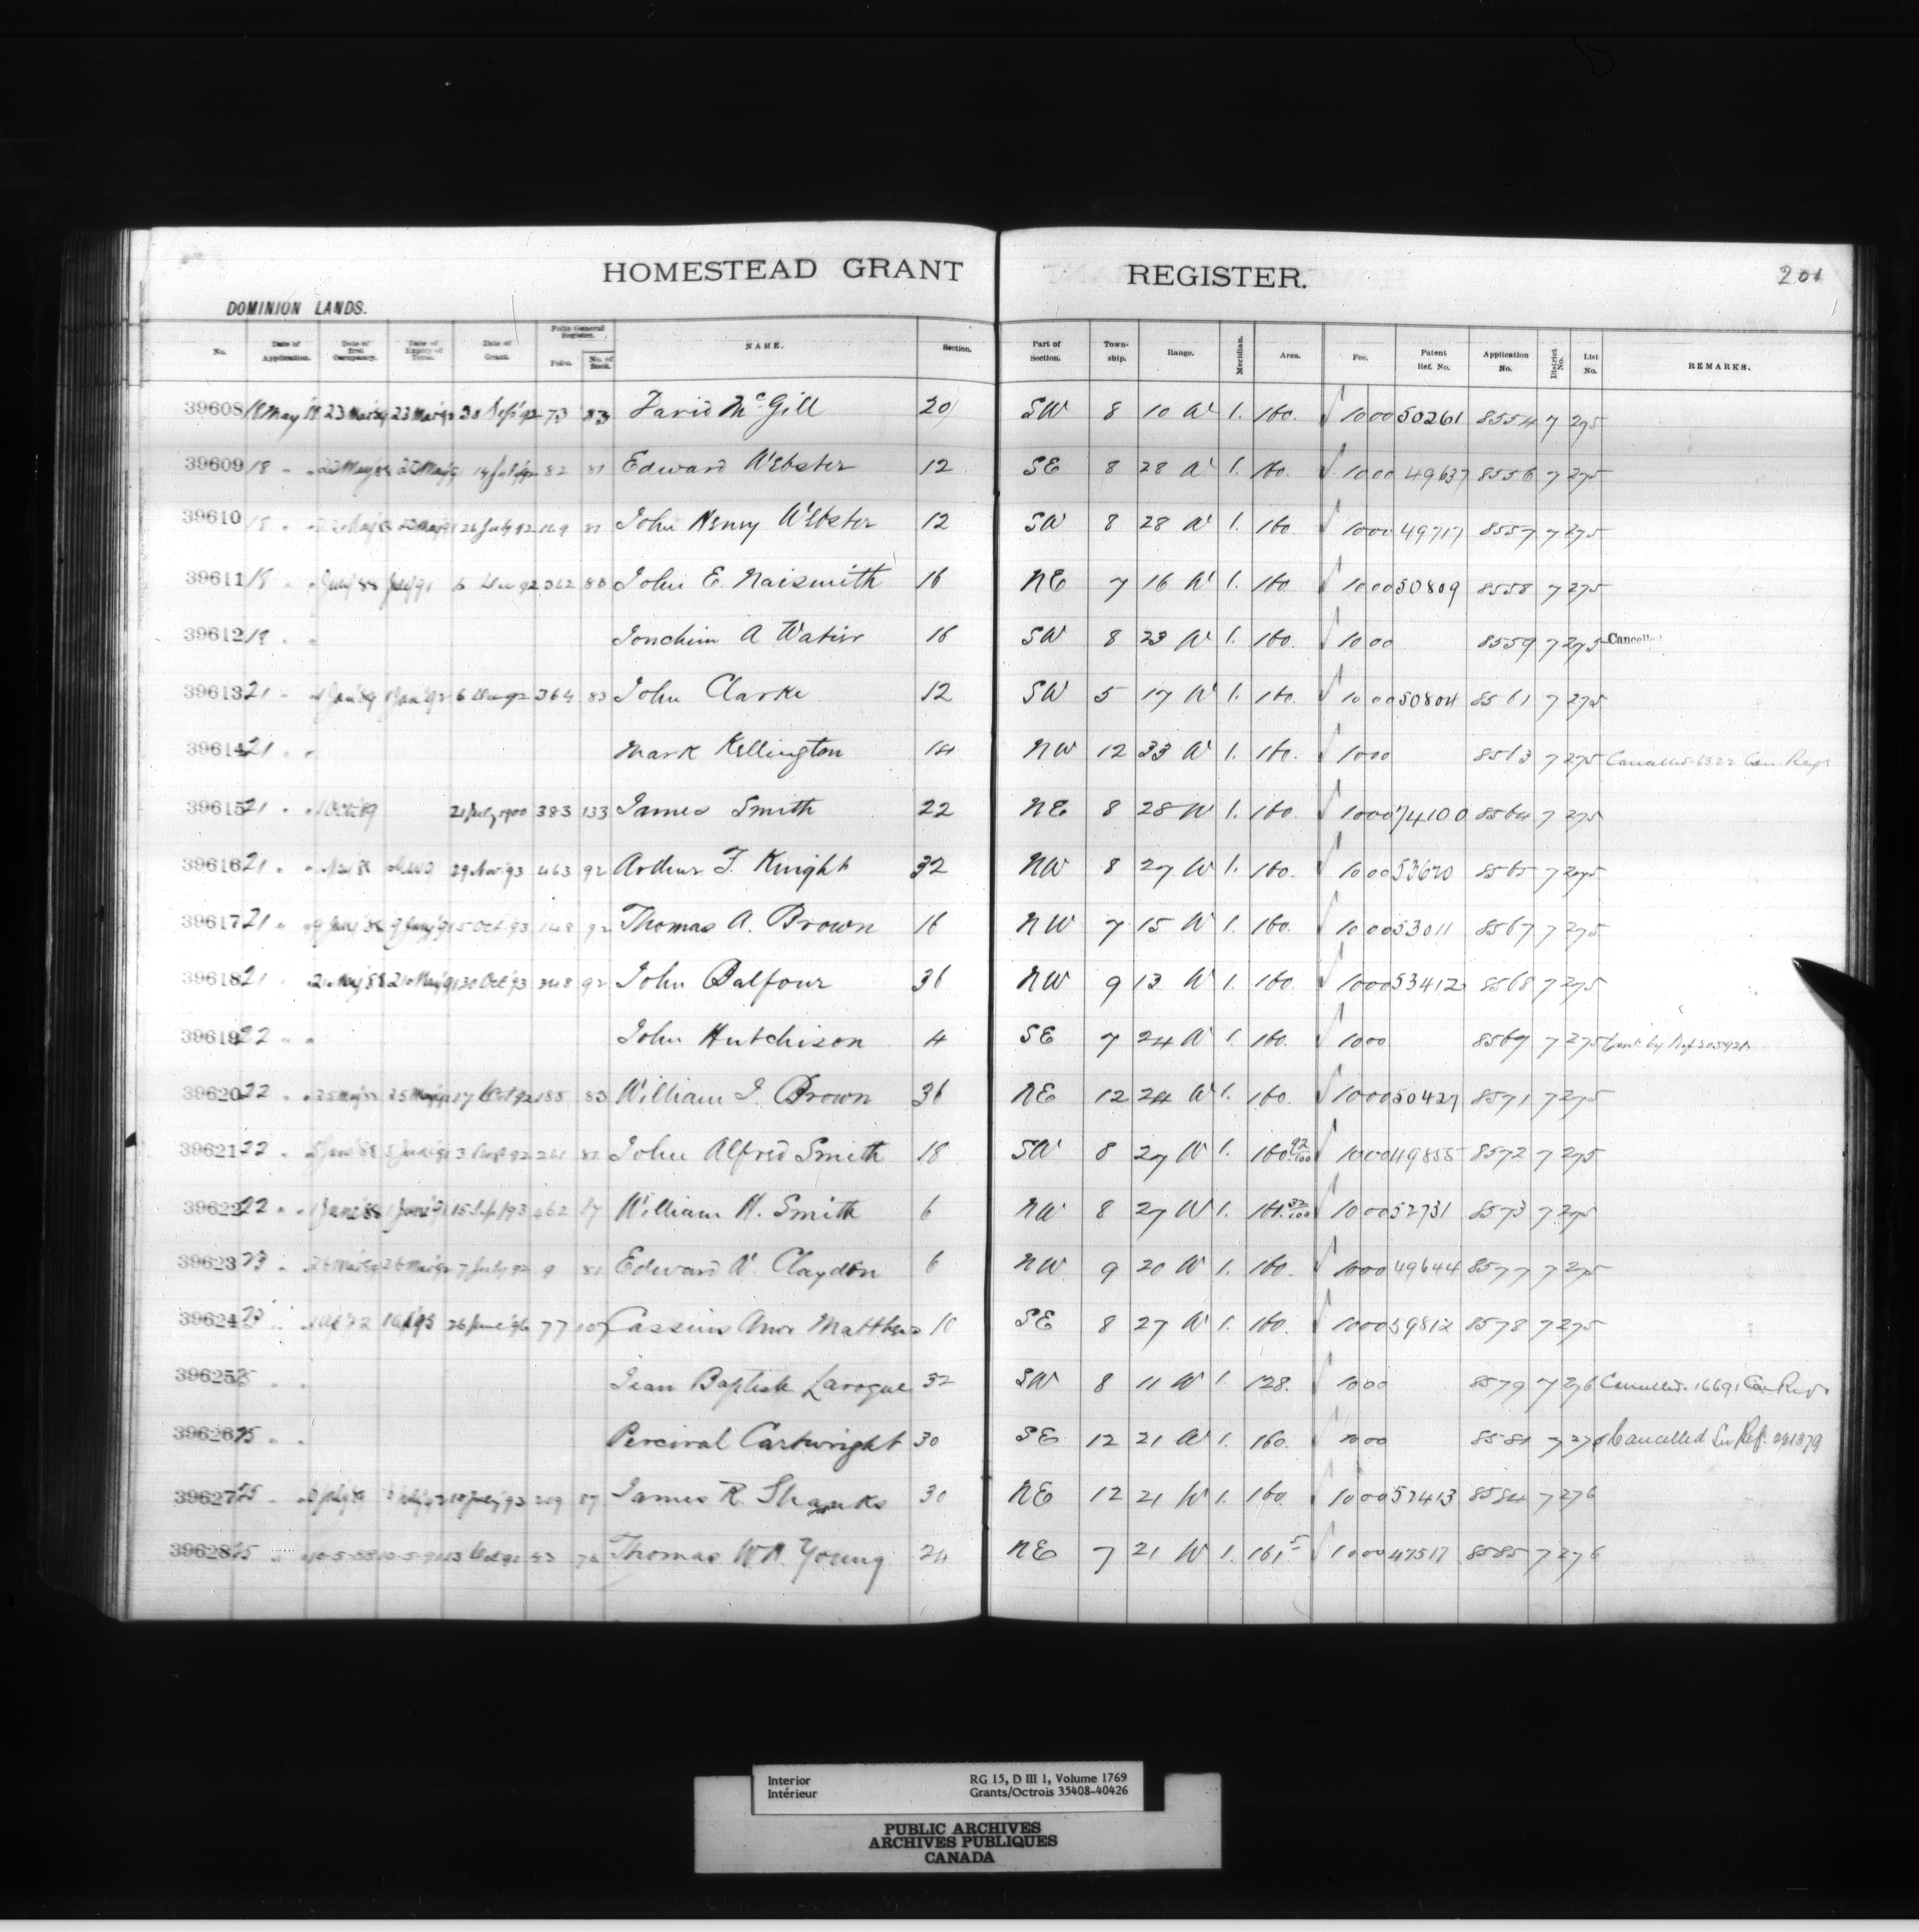 HOMESTEAD GRANT REGISTER. 201
DOMINION LANDS.
No. Date of Application. Date of first Occupancy. Date of Expiry of Term. Date of Grant. Folio General Register. Folio. No. of Book. NAME. Section. Part of Section. Township. Range. Meridian. Area. Fee. Patent Ref. No. Application No. District No. List No. REMARKS.
39608 18 May 23 23 73 83 David McGill 20 SW 8 10 W 1. 160. √ 10 00 50261 8554 7 275
39609 18 " " 82 81 Edward Webster 12 SE 8 28 W 1. 160. √ 10 00 49637 8556 7 275
39610 18 " " 26 July 92 169 81 John Henry Webster 12 SW 8 28 W 1. 160 √ 10 00 49717 8557 7 275
39611 18 " " July 88 July 91 6 Dec 92 362 83 John E. Naismith 16 NE 7 16 W 1. 160. √ 10 00 50809 8558 7 275
39612 19 " " A 16 SW 8 23 W 1. 160. √ 10 00 8559 7 275 Cancelled
39613 21 " " 1 Jan 89 1 Jan 92 6 Dec 92 364 83 John Clarke 12 SW 5 17 W 1. 160. √ 10 00 50804 8561 7 275
39614 21 " " Mark Kellington 14 NW 12 33 W 1. 160. √ 10 00 8563 7 275 Cancelled 6322 Can. Regr
39615 21 " " 1 Oct 89 1900 383 133 James Smith 22 NE 8 28 W 1. 160. √ 10 00 74100 8564 7 275
39616 21 " " 29 Nov 93 463 92 Arthur F. Knight 32 NW 8 27 W 1. 160. √ 10 00 53670 8565 7 275
39617 21 " " 5 Oct. 93 148 92 Thomas A. Brown 16 NW 7 15 W 1. 160. √ 10 00 53011 8567 7 275
39618 21 " 21 May 88 21 May 91 30 Oct 93 348 92 John Balfour 36 NW 9 13 W 1. 160. √ 10 00 53412 8568 7 275
39619 22 " " John Hutchison 4 SE 7 24 W 1. 160. √ 10 00 8569 7 275
39620 22 " " 25 May 25 May 17 Oct 92 155 83 William J. Brown 36 NE 12 24 W 1. 160. √ 10 00 50427 8571 7 275
39621 22 " 92 261 81 John Alfred Smith 18 SW 8 27 W 1. 160 92/100 √ 10 00 49855 8572 7 275
39622 22 " " 1 June 88 1 June 91 15 Sep 93 462 87 William H. Smith 6 NW 8 27 W 1. 161 32/100 √ 10 00 52731 8573 7 275
39623 23 " 26 26 7 July 92 9 81 Edward W. Claydon 6 NW 9 20 W 1. 160. √ 10 00 49644 8577 7 275
39624 23 " 26 June 96 77 107 Cassius Matthews 10 SE 8 27 W 1. 160. √ 10 00 59812 8578 7 275
39625 25 " " Jean Baptiste Laroque 32 SW 8 11 W 1. 128. √ 10 00 8579 7 276 Cancelled. 16691 Can Regr
39626 25 " " Percival Cartwright 30 SE 12 21 W 1. 160. √ 10 00 8581 7 276 Cancelled See Ref.
39627 25 " July 93 87 James R. Shanks 30 NE 12 21 W 1. 160. √ 10 00 8584 7 276
39628 25 " " 10-5-88 10-5-91 Thomas W.A. Young 24 NE 7 21 W 1. 161 √ 10 00 47517 8585 7 276
Interior RG 15, D III 1, Volume 1769
Intérieur Grants/Octrois 35408-40426
PUBLIC ARCHIVES
ARCHIVES PUBLIQUES
CANADA